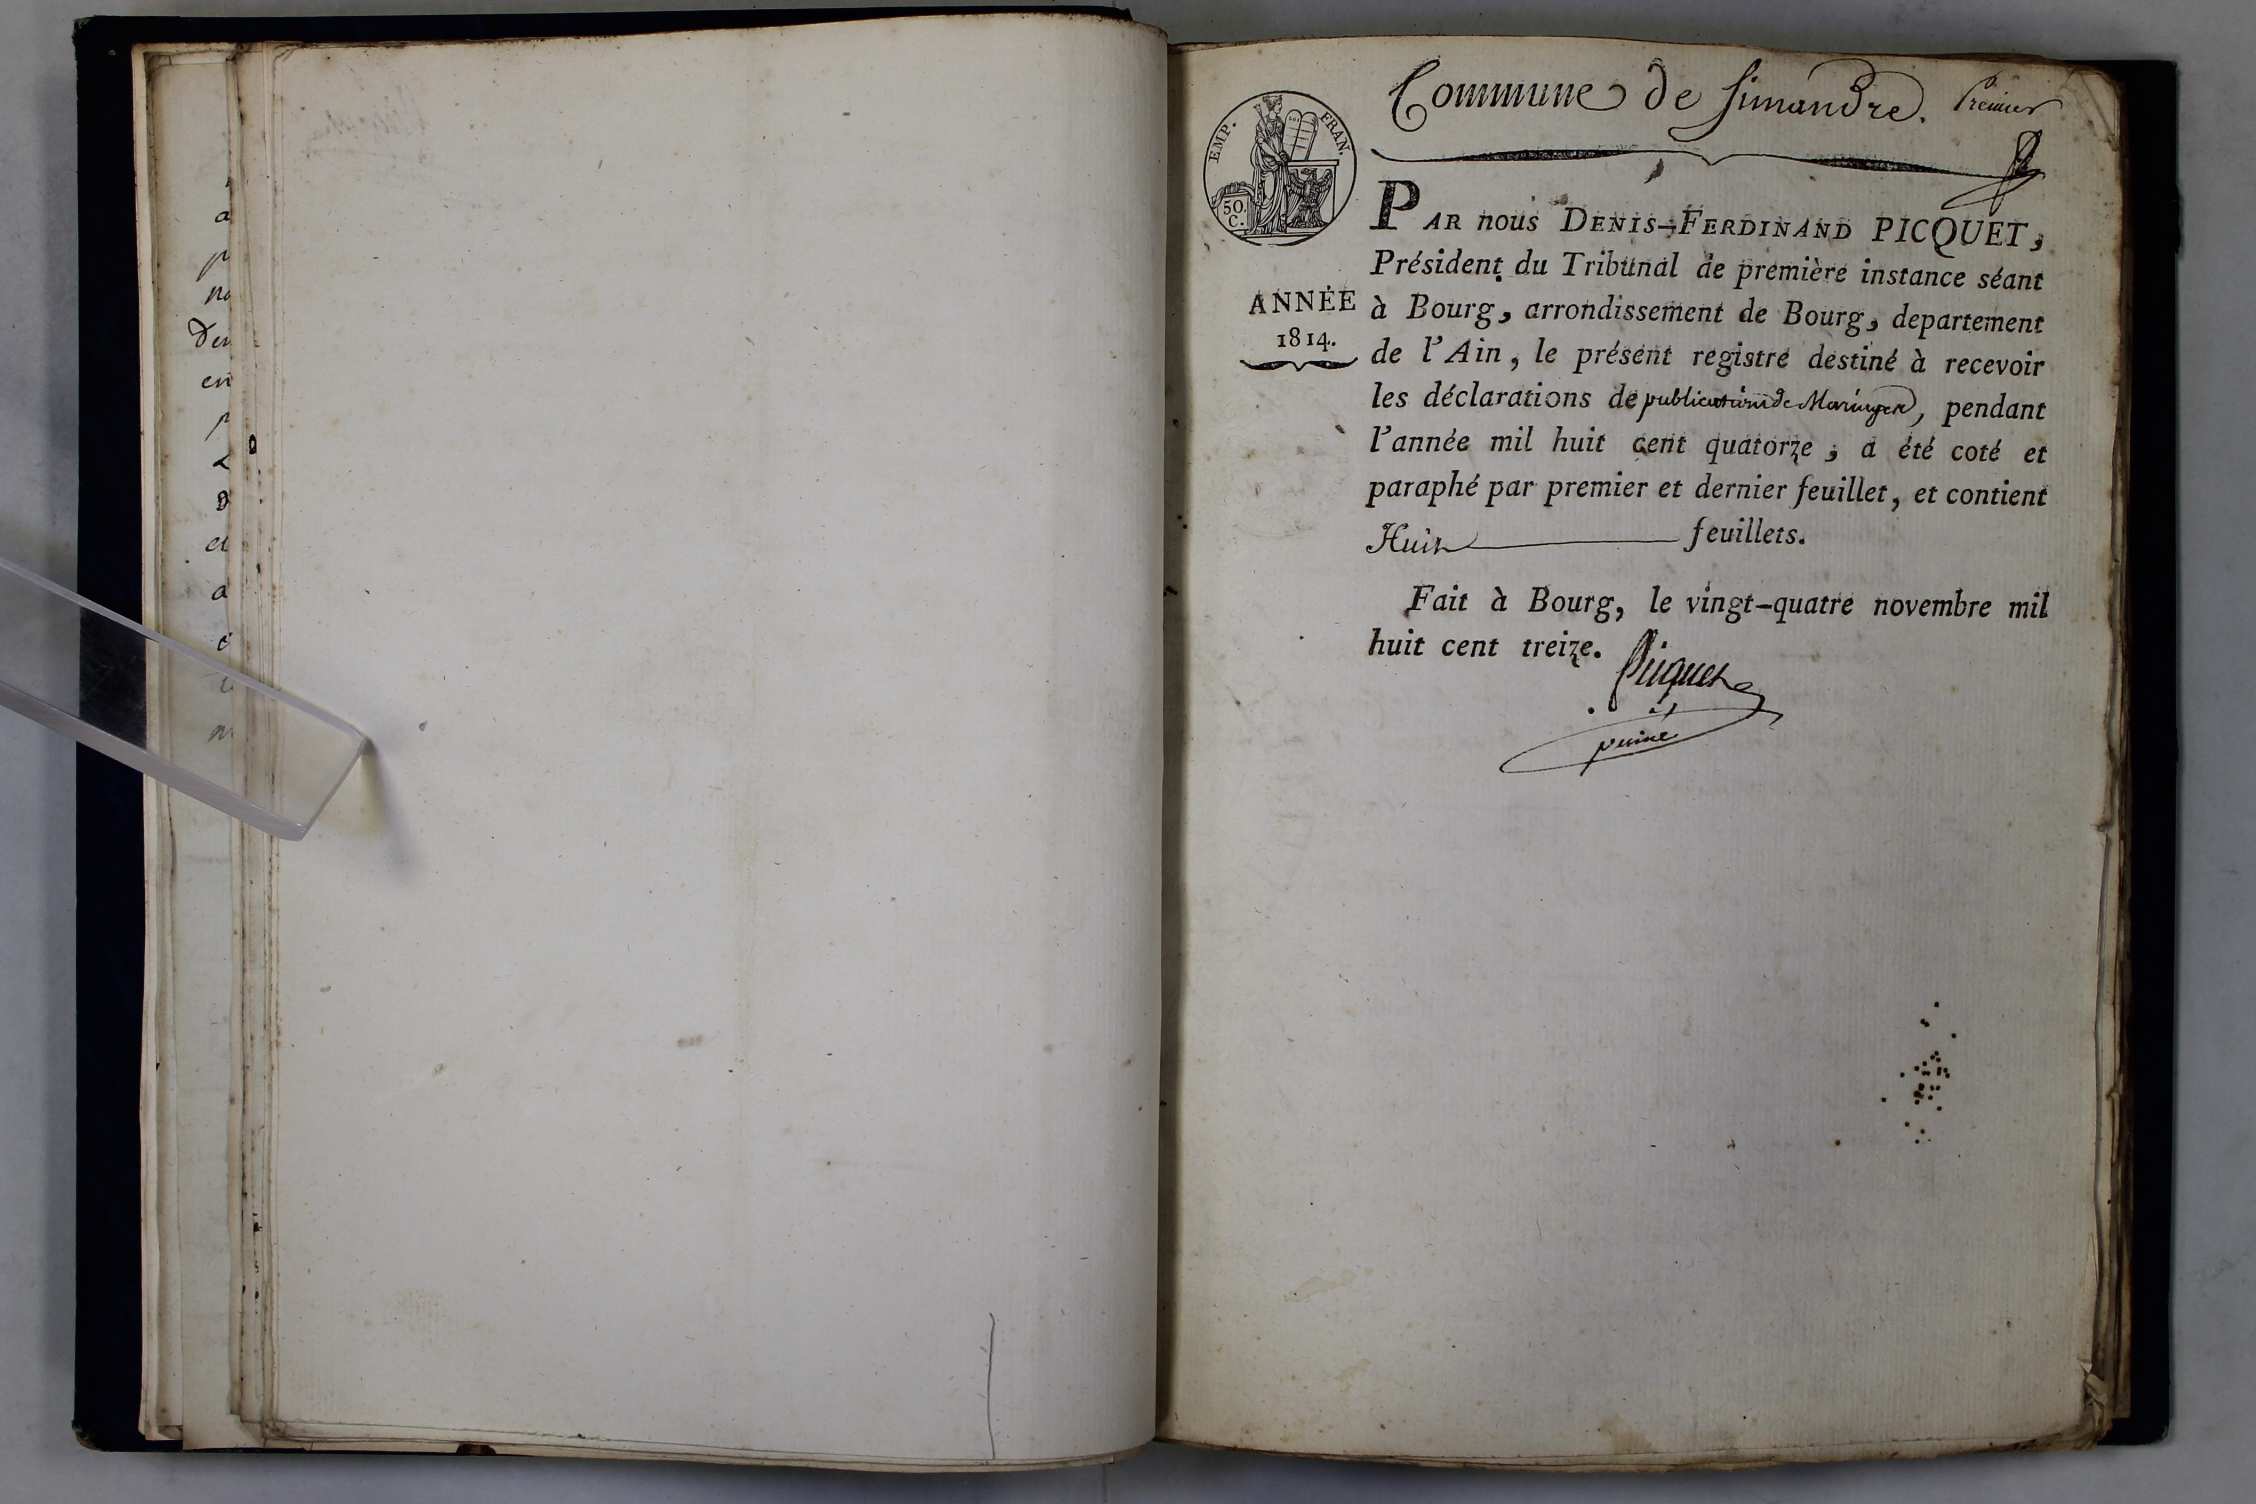 Commune de Simandre. Premier
EMP. FRAN.
50.
C.
ANNÉE
1814.
PAR nous DENIS-FERDINAND PICQUET,
Président du Tribunal de première instance séant
à Bourg, arrondissement de Bourg, departement
de l'Ain, le présent registre destiné à recevoir
les déclarations de publication de Mariages, pendant
l'année mil huit cent quatorze, a été coté et
paraphé par premier et dernier feuillet, et contient
Huit feuillets.
Fait à Bourg, le vingt-quatre novembre mil
huit cent treize.
Picquet